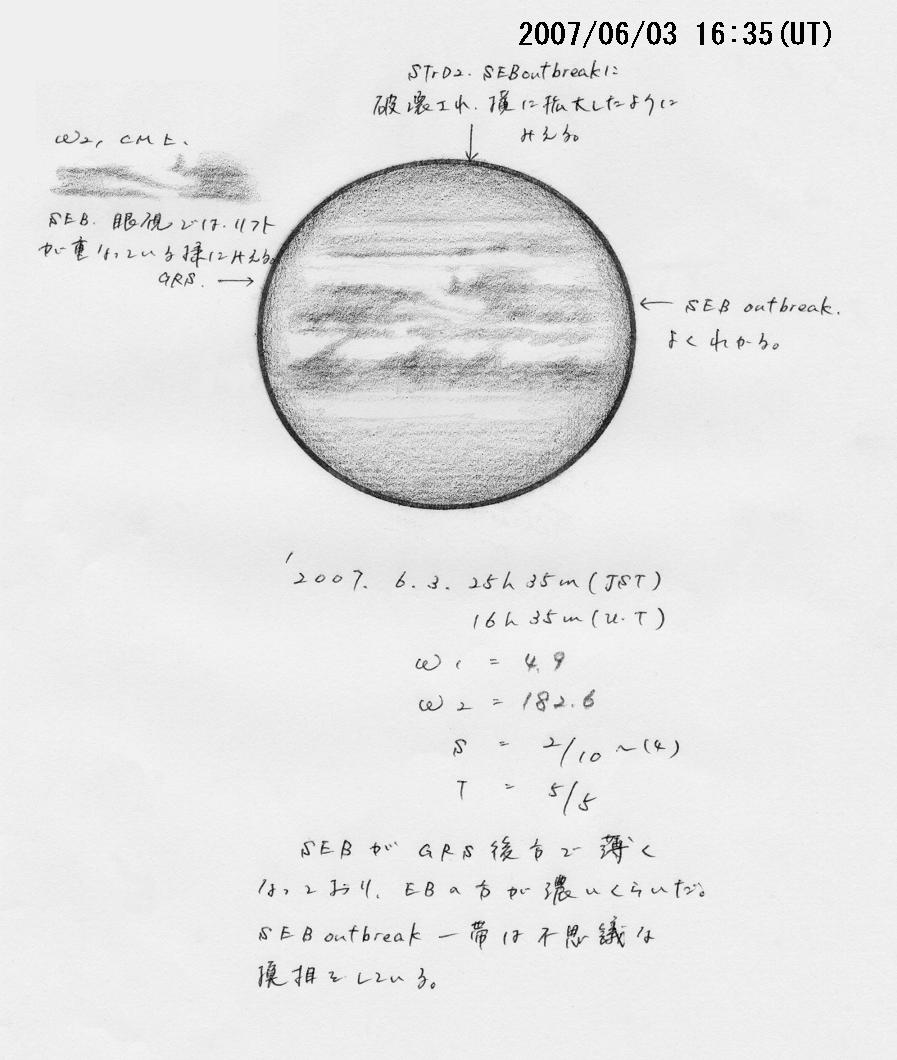 2007/06/03 16:35(UT)
STrD2. SEBoutbreakに
破壊され、横に拡大したように
みえる。
ω2, CMT.
SEB. 眼視では、リフト
が重なっている様にみえる。
GRS. →
← SEB outbreak.
よくわかる。
'2007. 6. 3. 25h 35m (JST)
16h 35m (U.T)
ω1 = 4.9
ω2 = 182.6
S = 2/10 ~(4)
T = 5/5
SEBがGRS後方で薄く
なっており、EBの方が濃いくらいだ。
SEB outbreak一帯は不思議な
様相をしている。